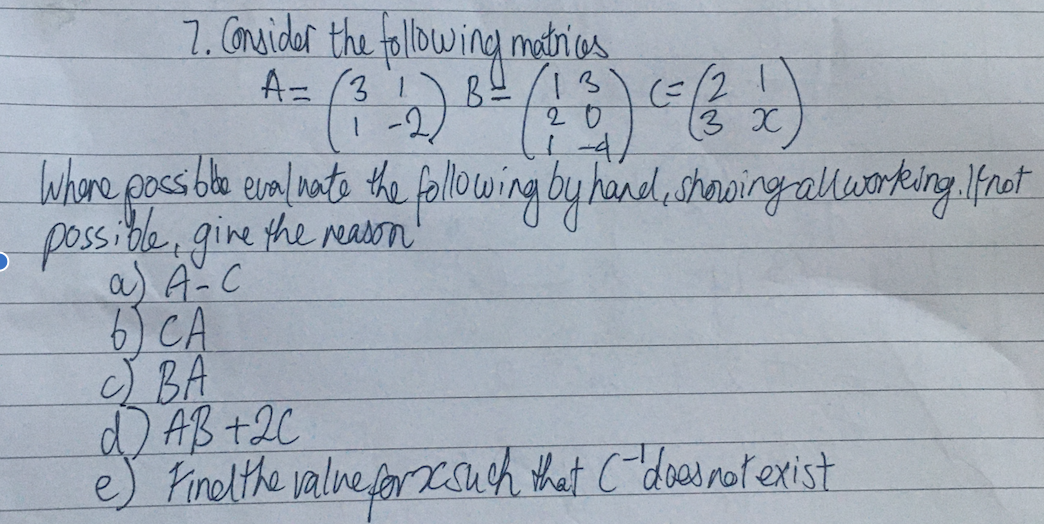 7. Consider the following matrices
A= (3 1 B= (1 3 C= (2 1
1 -2) 2 0 3 x)
1 -4)
Where possible evaluate the following by hand, showing all working. If not
possible, give the reason
a) A-C
b) CA
c) BA
d) AB +2C
e) Find the value for x such that C⁻¹ does not exist